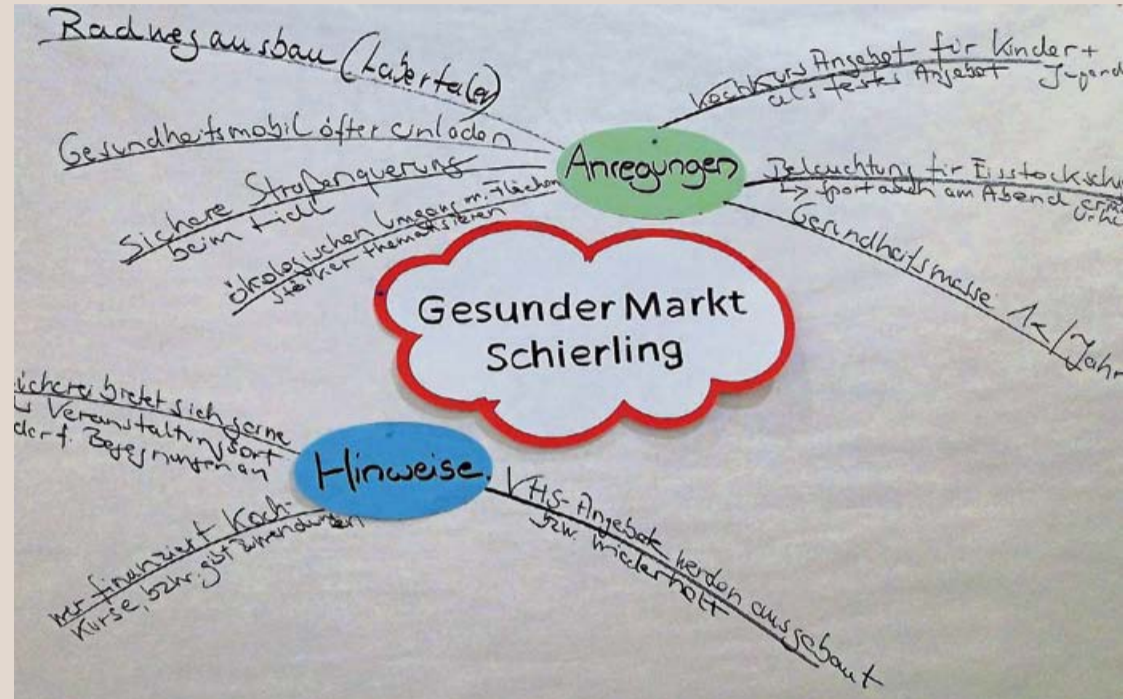 Radwegausbau (Labertaler)
Gesundheitsmobil öfter einladen
Sichere Straßenquerung
beim Lidl
ökologischen Umgang m. Flächen
stärker thematisieren
Anregungen
Kochkurs Angebot für Kinder +
Jugend
als festes Angebot
Beleuchtung für
↳ Sport auch am Abend
Gesundheitsmesse 1x/Jahr
Gesunder Markt
Schierling
bietet sich gerne
↳ Veranstaltungsort
Begegnungen an
Hinweise
wer finanziert Koch-
kurse, bzw. gibt
VHS-Angebote werden ausgebaut
bzw. wiederholt